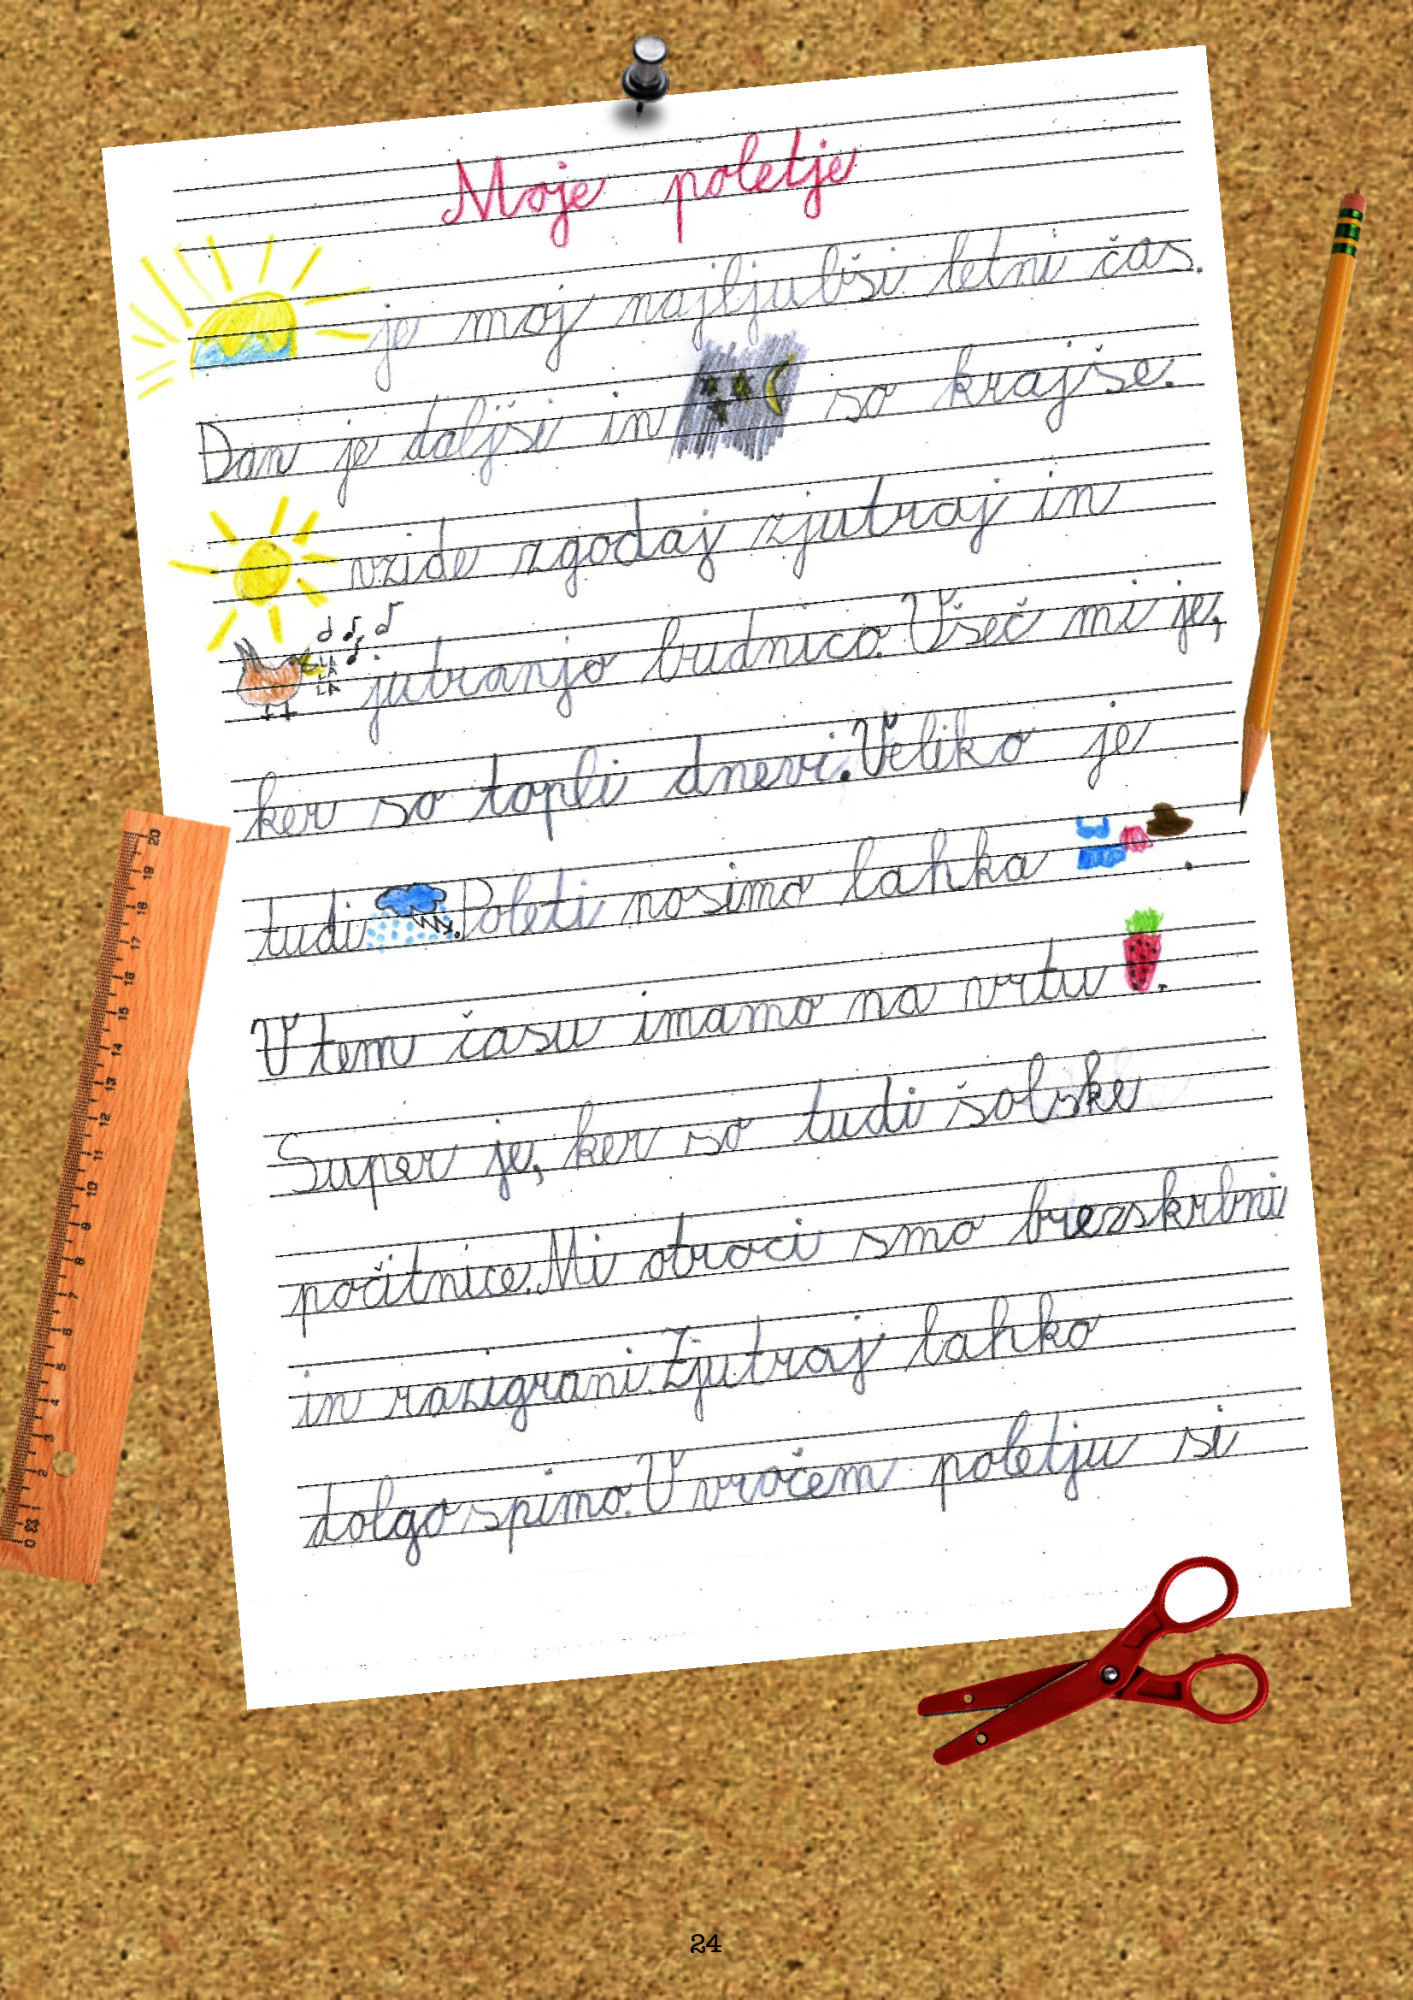 Moje poletje
je moj najljubši letni čas.
Dan je daljši in so krajše.
vzide zgodaj zjutraj in
LA LA LA jutranjo budnico. Všeč mi je,
ker so topli dnevi. Veliko je
tudi . Poleti nosimo lahka .
V tem času imamo na vrtu .
Super je, ker so tudi šolske
počitnice. Mi otroci smo brezskrbni
in razigrani. Zjutraj lahko
dolgo spimo. V vročem poletju si
0 1 2 3 4 5 6 7 8 9 10 11 12 13 14 15 16 17 18 19 20
24